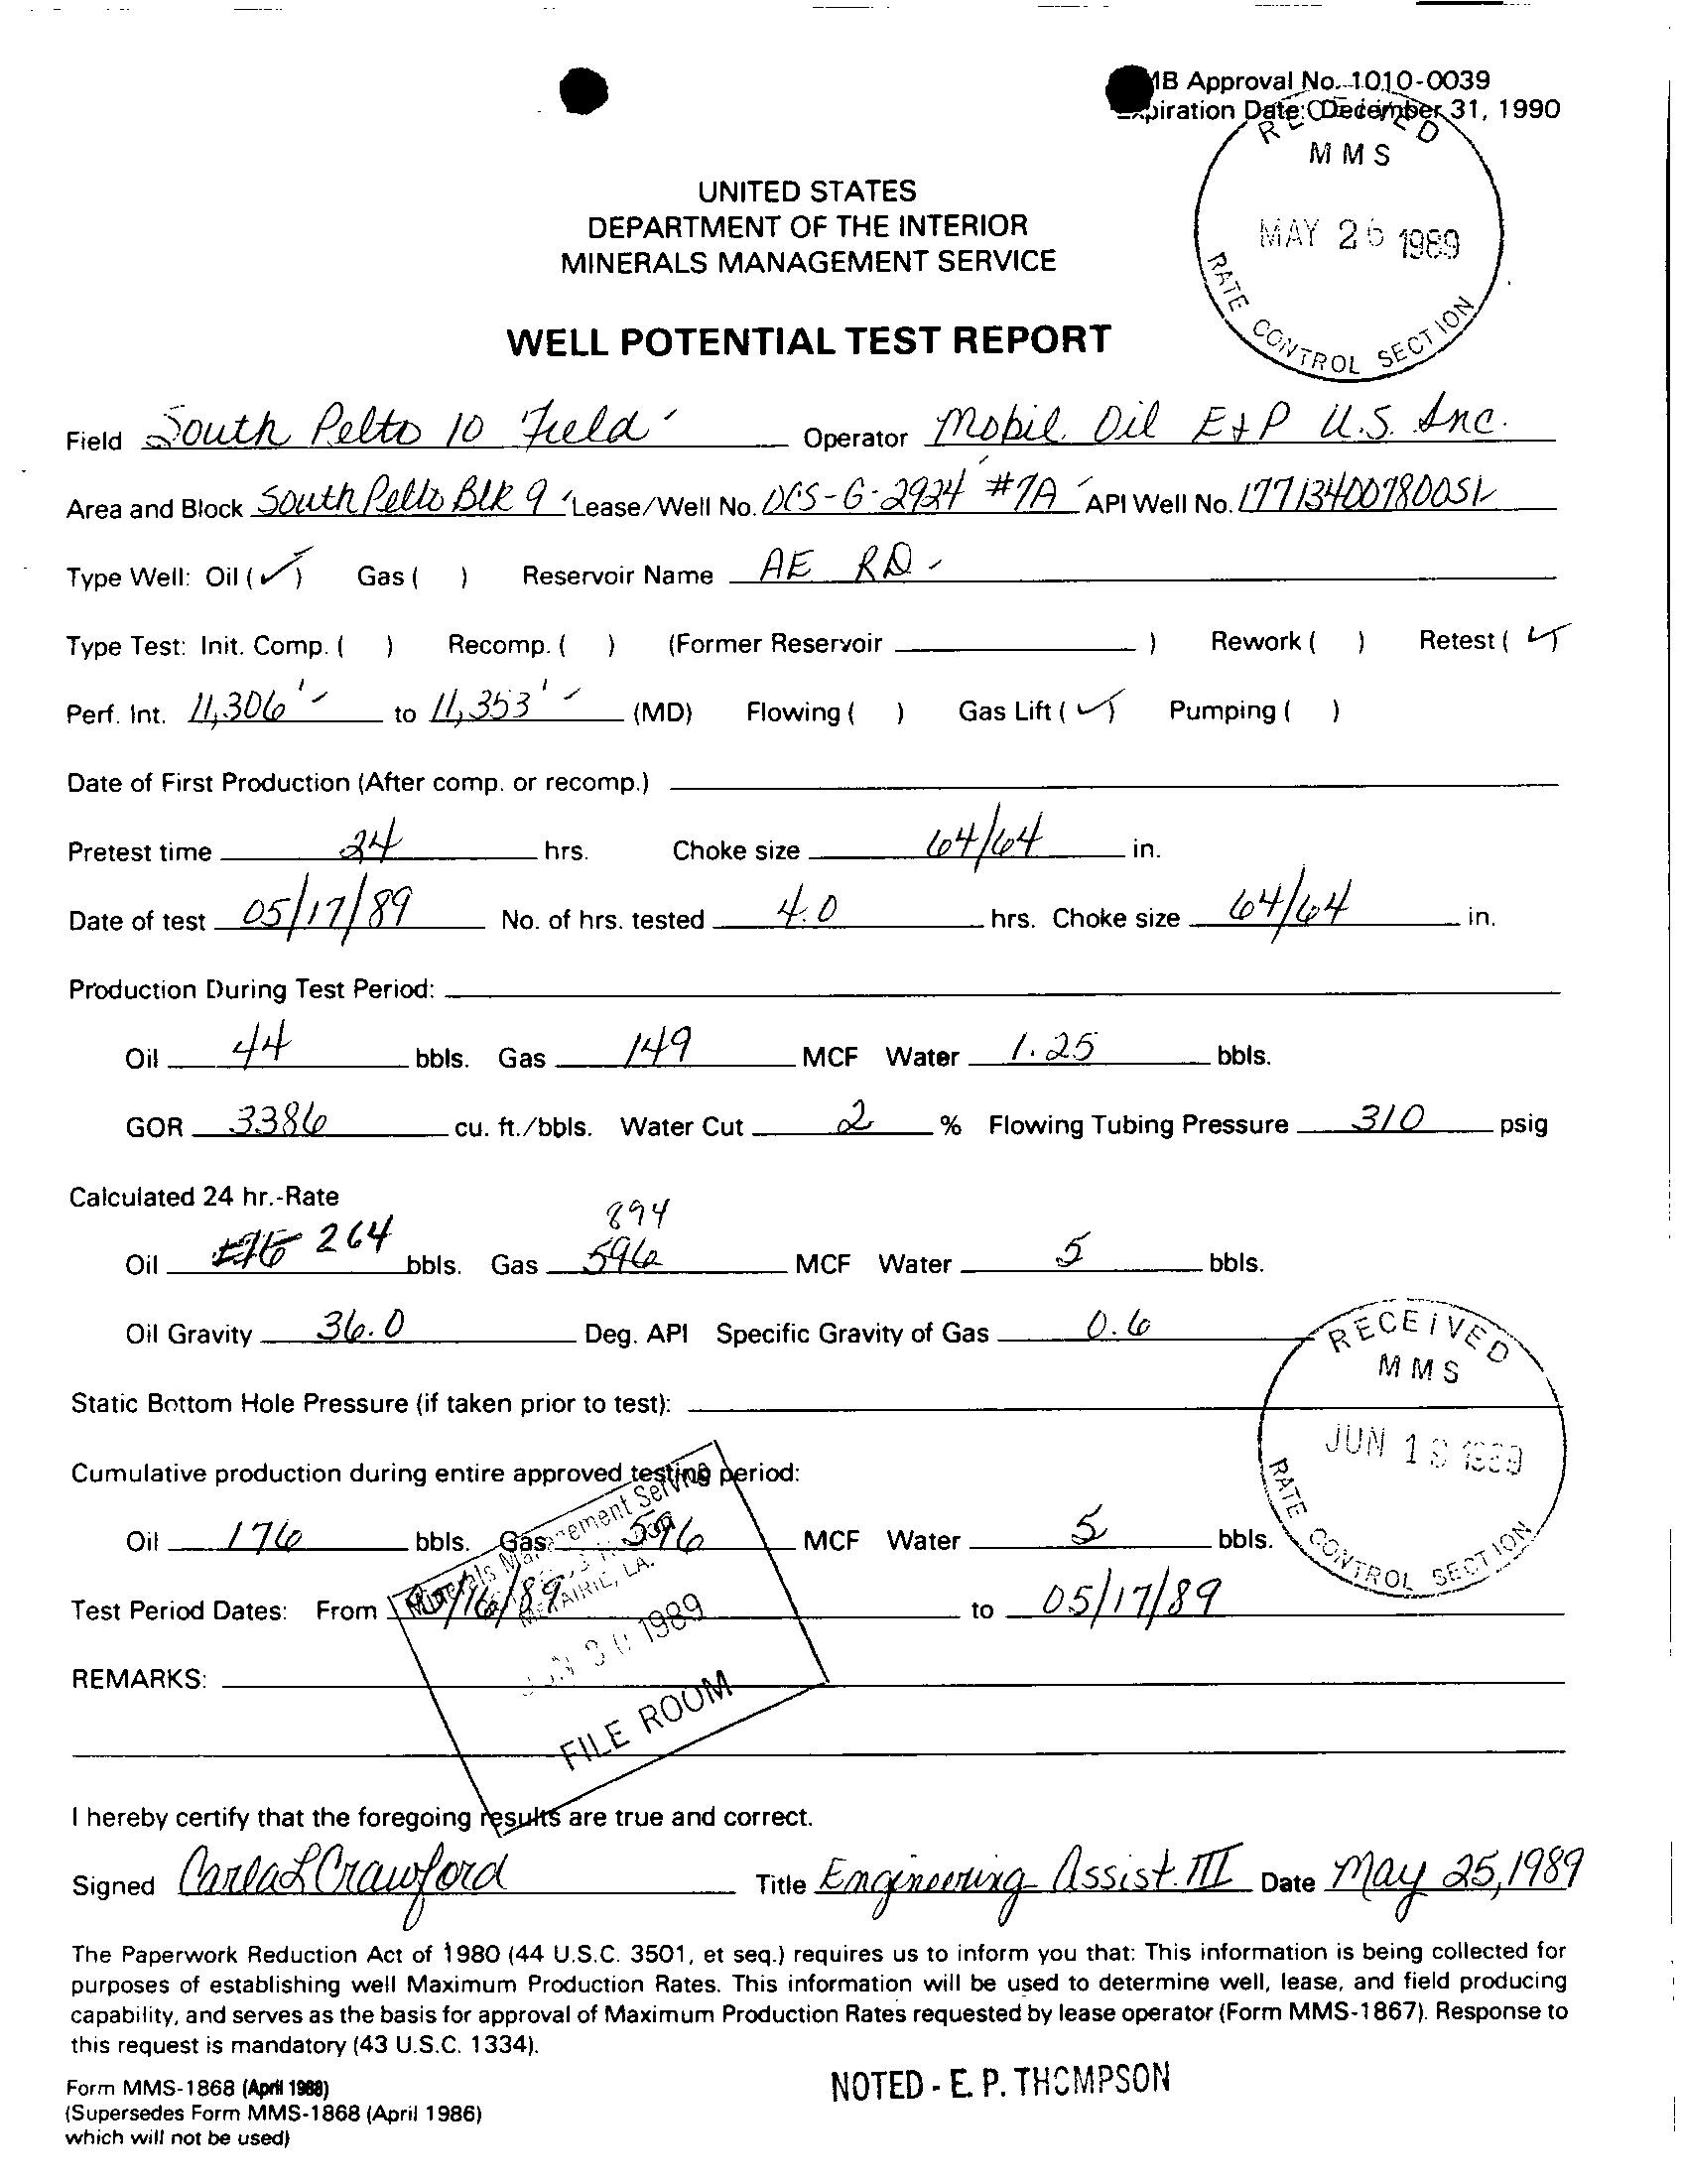 MB Approval No. 1010-0039
Expiration Date: December 31, 1990
RECEIVED
MMS
MAY 26 1989
RATE CONTROL SECTION
UNITED STATES
DEPARTMENT OF THE INTERIOR
MINERALS MANAGEMENT SERVICE
WELL POTENTIAL TEST REPORT
Field South Pelto 10 Field Operator Mobil Oil E&P U.S. Inc.
Area and Block South Pelto Blk 9 Lease/Well No. OCS-G-2924 #7A API Well No. 177134007800S1
Type Well: Oil (✓) Gas ( ) Reservoir Name AE RD
Type Test: Init. Comp. ( ) Recomp. ( ) (Former Reservoir ) Rework ( ) Retest (✓)
Perf. Int. 11,306' to 11,353' (MD) Flowing ( ) Gas Lift (✓) Pumping ( )
Date of First Production (After comp. or recomp.)
Pretest time 24 hrs. Choke size 64/64 in.
Date of test 05/17/89 No. of hrs. tested 4.0 hrs. Choke size 64/64 in.
Production During Test Period:
Oil 44 bbls. Gas 149 MCF Water 1.25 bbls.
GOR 3386 cu. ft./bbls. Water Cut 2 % Flowing Tubing Pressure 310 psig
Calculated 24 hr.-Rate
894
Oil 264 bbls. Gas 596 MCF Water 5 bbls.
Oil Gravity 36.0 Deg. API Specific Gravity of Gas 0.6
RECEIVED
MMS
JUN 1 1989
RATE CONTROL SECTION
Static Bottom Hole Pressure (if taken prior to test):
Cumulative production during entire approved testing period:
Oil 176 bbls. Gas 596 MCF Water 5 bbls.
Test Period Dates: From 05/16/89 to 05/17/89
Minerals Management Service
METAIRIE, LA.
1989
FILE ROOM
REMARKS:
I hereby certify that the foregoing results are true and correct.
Signed Carla L Crawford Title Engineering Assist. III Date May 25, 1989
The Paperwork Reduction Act of 1980 (44 U.S.C. 3501, et seq.) requires us to inform you that: This information is being collected for
purposes of establishing well Maximum Production Rates. This information will be used to determine well, lease, and field producing
capability, and serves as the basis for approval of Maximum Production Rates requested by lease operator (Form MMS-1867). Response to
this request is mandatory (43 U.S.C. 1334).
NOTED - E. P. THOMPSON
Form MMS-1868 (April 1988)
(Supersedes Form MMS-1868 (April 1986)
which will not be used)